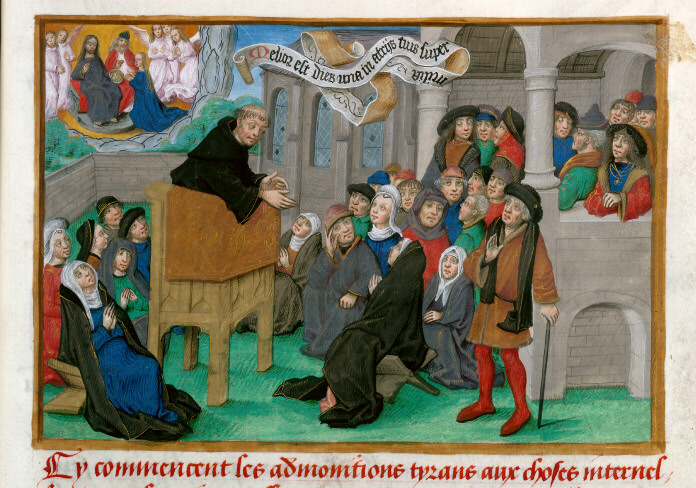 Melior est dies una in atrijs tuis super
milia
Cy commencent les admonitions tyrans aux choses internel